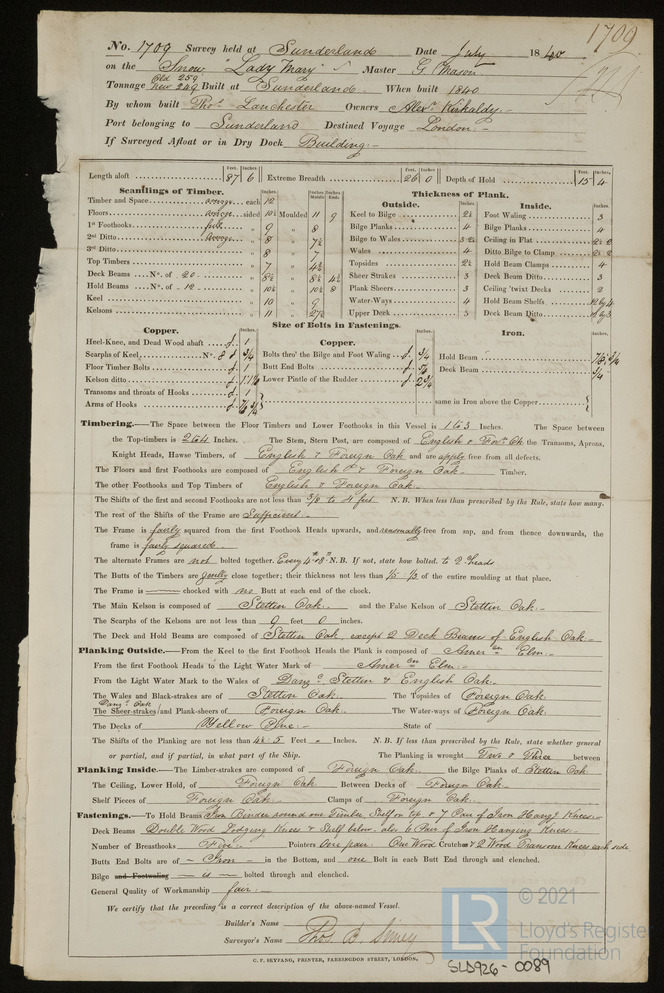 1709
No. 1709 Survey held at Sunderland Date July 1840
on the Snow "Lady Mary" Master G. Mason
Tonnage Old 259 New 249 Built at Sunderland When built 1840
By whom built Thos. Lanchester Owners Alexr. Kirkaldy
Port belonging to Sunderland Destined Voyage London
If Surveyed Afloat or in Dry Dock Building
Length aloft 87 6 Extreme Breadth 26 0 Depth of Hold 15 4
Feet. Inches. Feet. Inches. Feet. Inches.
Scantlings of Timber.
Inches. Inches Middle Inches Ends
Timber and Space average each 12
Floors average sided 10½ Moulded 11 9
1st Foothooks 9 " 8
2nd Ditto average 8 " 7½
3rd Ditto 8 " 7
Top Timbers 7 " 4½
Deck Beams No. of 20 8½ " 8½ 4½
Hold Beams No. of 12 10½ " 10½ 8
Keel 10 " 9
Kelsons 11 " 27½
Thickness of Plank.
Outside.
Inches.
Keel to Bilge 2½
Bilge Planks 4
Bilge to Wales
Wales 4
Topsides 2½
Sheer Strakes 3
Plank Sheers 3
Water-Ways 4
Upper Deck 3
Inside.
Inches.
Foot Waling 3
Bilge Planks 4
Ceiling in Flat
Ditto Bilge to Clamp
Hold Beam Clamps 4
Deck Beam Ditto 3
Ceiling 'twixt Decks 2
Hold Beam Shelfs 12 by 4
Deck Beam Ditto by 3
Size of Bolts in Fastenings.
Copper.
Inches.
Heel-Knee, and Dead Wood abaft 1
Scarphs of Keel No. 8 ¾
Floor Timber Bolts 1
Kelson ditto
Transoms and throats of Hooks 1
Arms of Hooks
Copper.
Inches.
Bolts thro' the Bilge and Foot Waling ¾
Butt End Bolts
Lower Pintle of the Rudder 2¾
Iron.
Inches.
Hold Beam
Deck Beam ¾
same in Iron above the Copper
Timbering.—The Space between the Floor Timbers and Lower Foothooks in this Vessel is 1 to 3 Inches. The Space between
the Top-timbers is 2 to 4 Inches. The Stem, Stern Post, are composed of English & For. Oak the Transoms, Aprons,
Knight Heads, Hawse Timbers, of English & Foreign Oak and are free from all defects.
The Floors and first Foothooks are composed of English & Foreign Oak Timber.
The other Foothooks and Top Timbers of English & Foreign Oak
The Shifts of the first and second Foothooks are not less than 3/8 to 4 feet N. B. When less than prescribed by the Rule, state how many.
The rest of the Shifts of the Frame are Sufficient
The Frame is fairly squared from the first Foothook Heads upwards, and reasonably free from sap, and from thence downwards, the
frame is fairly squared
The alternate Frames are not bolted together. Every N. B. If not, state how bolted. to 2nd heads
The Butts of the Timbers are genlly close together; their thickness not less than 1/5 - 1/3 of the entire moulding at that place.
The Frame is chocked with no Butt at each end of the chock.
The Main Kelson is composed of Stettin Oak and the False Kelson of Stettin Oak
The Scarphs of the Kelsons are not less than 9 feet 0 inches.
The Deck and Hold Beams are composed of Stettin Oak, except 2 Deck Beams of English Oak
Planking Outside.—From the Keel to the first Foothook Heads the Plank is composed of Amercn Elm
From the first Foothook Heads to the Light Water Mark of Amercn Elm
From the Light Water Mark to the Wales of Danzc Stettin & English Oak
The Wales and Black-strakes are of Stettin Oak The Topsides of Foreign Oak
Danzc Oak
The Sheer-strakes / and Plank-sheers of Foreign Oak The Water-ways of Foreign Oak
The Decks of Yellow Pine State of
The Shifts of the Planking are not less than 4½ 5 Feet " Inches. N. B. If less than prescribed by the Rule, state whether general
or partial, and if partial, in what part of the Ship. The Planking is wrought Two & Three between
Planking Inside.—The Limber-strakes are composed of Foreign Oak the Bilge Planks of Stettin Oak
The Ceiling, Lower Hold, of Foreign Oak Between Decks of Foreign Oak
Shelf Pieces of Foreign Oak Clamps of Foreign Oak
Fastenings.—To Hold Beams Iron Binder round one Timber Shelf on top & 7 Pair of Iron Hangg Knees
Deck Beams Double Wood Lodging Knees & Shelf below also 6 Pair of Iron Hanging Knees
Number of Breasthooks Five Pointers One pair One Wood Crutches & 2 Wood Transom Knees each side
Butts End Bolts are of Iron in the Bottom, and one Bolt in each Butt End through and clenched.
Bilge and Footwaling is bolted through and clenched.
General Quality of Workmanship fair
We certify that the preceding is a correct description of the above-named Vessel.
Builder's Name
Surveyor's Name Thos. B. Simey
C. F. SEYFANG, PRINTER, FARRINGDON STREET, LONDON.
SLD926-0089
LR
© 2021
Lloyd's Register
Foundation